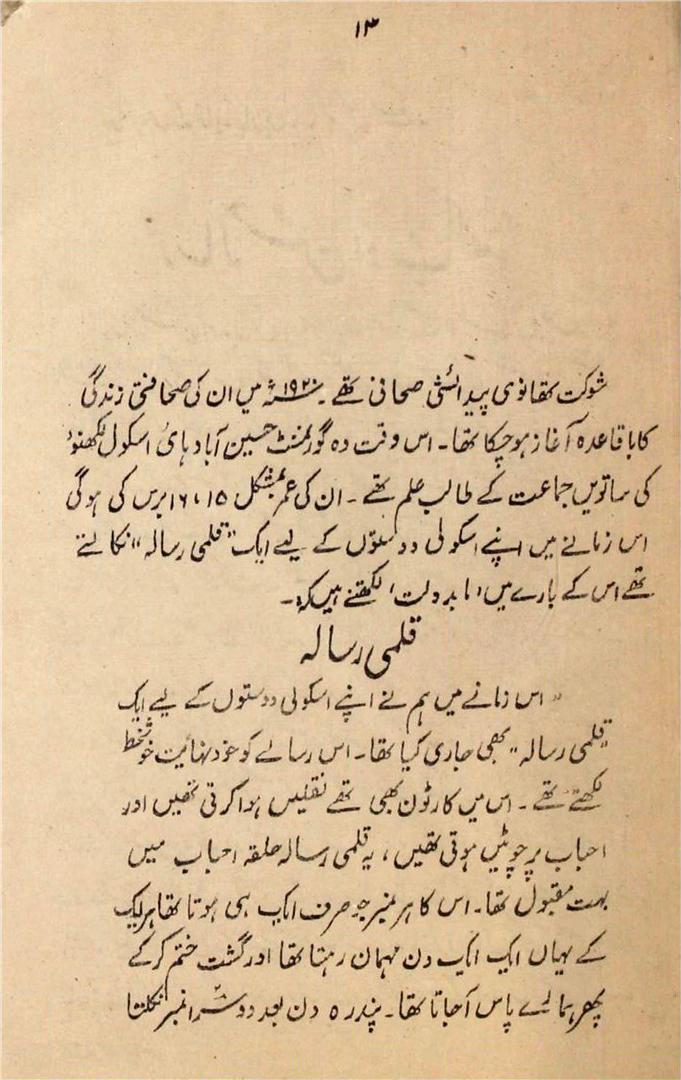 ۱۳
شوکت تھانوی پیدائشی صحافی تھے۔ ۱۹۲۰ء میں ان کی صحافتی زندگی
کا باقاعدہ آغاز ہوچکا تھا۔ اس وقت وہ گورنمنٹ حسین آباد ہائی اسکول لکھنؤ
کی ساتویں جماعت کے طالب علم تھے۔ ان کی عمر بمشکل ۱۵، ۱۶ برس کی ہوگی
اس زمانے میں اپنے اسکولی دوستوں کے لیے ایک "قلمی رسالہ" نکالتے
تھے اس کے بارے میں 'مابدولت' لکھتے ہیں کہ:۔
قلمی رسالہ
"اس زمانے میں ہم نے اپنے اسکولی دوستوں کے لیے ایک
"قلمی رسالہ" بھی جاری کیا تھا۔ اس رسالے کو خود نہائیت خوشخط
لکھتے تھے۔ اس میں کارٹون بھی تھے نقلیں ہوا کرتی تھیں اور
احباب پر چوٹیں ہوتی تھیں، یہ قلمی رسالہ حلقہ احباب میں
بہت مقبول تھا۔ اس کا ہر نمبر جو صرف ایک ہی ہوتا تھا ہر ایک
کے یہاں ایک ایک دن مہمان رہتا تھا اور گشت ختم کرکے
پھر ہمارے پاس آجاتا تھا۔ پندرہ دن بعد دوسرا نمبر نکلتا